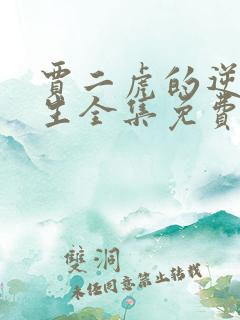 賈二虎的逆
生全集免費
雙洞
未經同意禁止轉載